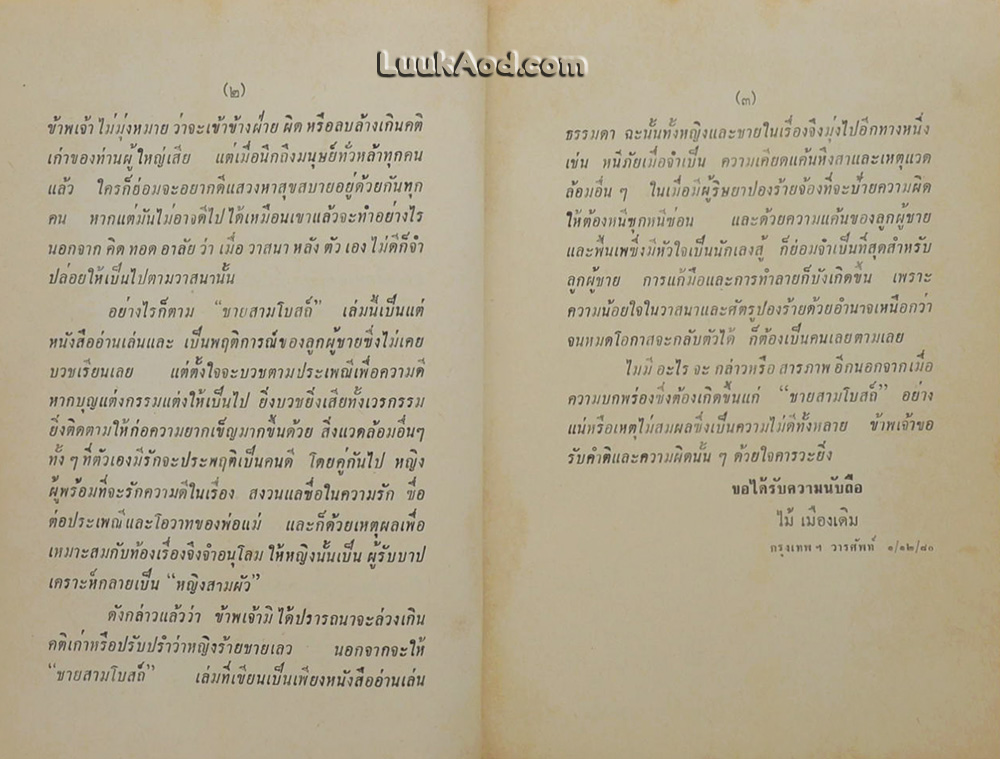 LuukAod.com
(๒)
ข้าพเจ้า ไม่มุ่งหมาย ว่าจะเข้าข้างฝ่าย ผิด หรือลบล้างเกินคติ
เก่าของท่านผู้ใหญ่เสีย แต่เมื่อนึกถึงมนุษย์ทั่วหล้าทุกคน
แล้ว ใครก็ย่อมจะอยากดีแสวงหาสุขสบายอยู่ด้วยกันทุก
คน หากแต่มันไม่อาจดีไปได้เหมือนเขาแล้วจะทำอย่างไร
นอกจาก คิด ทอด อาลัย ว่า เมื่อ วาสนา หลัง ตัว เอง ไม่ดีก็จำ
ปล่อยให้เป็นไปตามวาสนานั้น
อย่างไรก็ตาม “ชายสามโบสถ์” เล่มนี้เป็นแต่
หนังสืออ่านเล่นและ เป็นพฤติการณ์ของลูกผู้ชายซึ่งไม่เคย
บวชเรียนเลย แต่ตั้งใจจะบวชตามประเพณีเพื่อความดี
หากบุญแต่งกรรมแต่งให้เป็นไป ยิ่งบวชยิ่งเสียทั้งเวรกรรม
ยิ่งติดตามให้ก่อความยากเข็ญมากขึ้นด้วย สิ่งแวดล้อมอื่นๆ
ทั้ง ๆ ที่ตัวเองมีรักจะประพฤติเป็นคนดี โดยคู่กันไป หญิง
ผู้พร้อมที่จะรักความดีในเรื่อง สงวนแลซื่อในความรัก ซื่อ
ต่อประเพณีและโอวาทของพ่อแม่ และก็ด้วยเหตุผลเพื่อ
เหมาะสมกับท้องเรื่องจึงจำอนุโลม ให้หญิงนั้นเป็น ผู้รับบาป
เคราะห์กลายเป็น “หญิงสามผัว”
ดังกล่าวแล้วว่า ข้าพเจ้ามิ ได้ปรารถนาจะล่วงเกิน
คติเก่าหรือปรับปรำว่าหญิงร้ายชายเลว นอกจากจะให้
“ชายสามโบสถ์” เล่มที่เขียนเป็นเพียงหนังสืออ่านเล่น
(๓)
ธรรมดา ฉะนั้นทั้งหญิงและชายในเรื่องจึงมุ่งไปอีกทางหนึ่ง
เช่น หนีภัยเมื่อจำเป็น ความเคียดแค้นหึงสาและเหตุแวด
ล้อมอื่น ๆ ในเมื่อมีผู้ริษยาปองร้ายจ้องที่จะป้ายความผิด
ให้ต้องหนีซุกหนีซ่อน และด้วยความแค้นของลูกผู้ชาย
และพื้นเพซึ่งมีหัวใจเป็นนักเลงสู้ ก็ย่อมจำเป็นที่สุดสำหรับ
ลูกผู้ชาย การแก้มือและการทำลายก็บังเกิดขึ้น เพราะ
ความน้อยใจในวาสนาและศัตรูปองร้ายด้วยอำนาจเหนือกว่า
จนหมดโอกาสจะกลับตัวได้ ก็ต้องเป็นคนเลยตามเลย
ไม่มี อะไร จะ กล่าวหรือ สารภาพ อีกนอกจากเมื่อ
ความบกพร่องซึ่งต้องเกิดขึ้นแก่ “ชายสามโบสถ์” อย่าง
แน่หรือเหตุไม่สมผลซึ่งเป็นความไม่ดีทั้งหลาย ข้าพเจ้าขอ
รับคำติและความผิดนั้น ๆ ด้วยใจคารวะยิ่ง
ขอได้รับความนับถือ
ไม้ เมืองเดิม
กรุงเทพ ฯ วารศัพท์ ๑/๑๒/๘๐